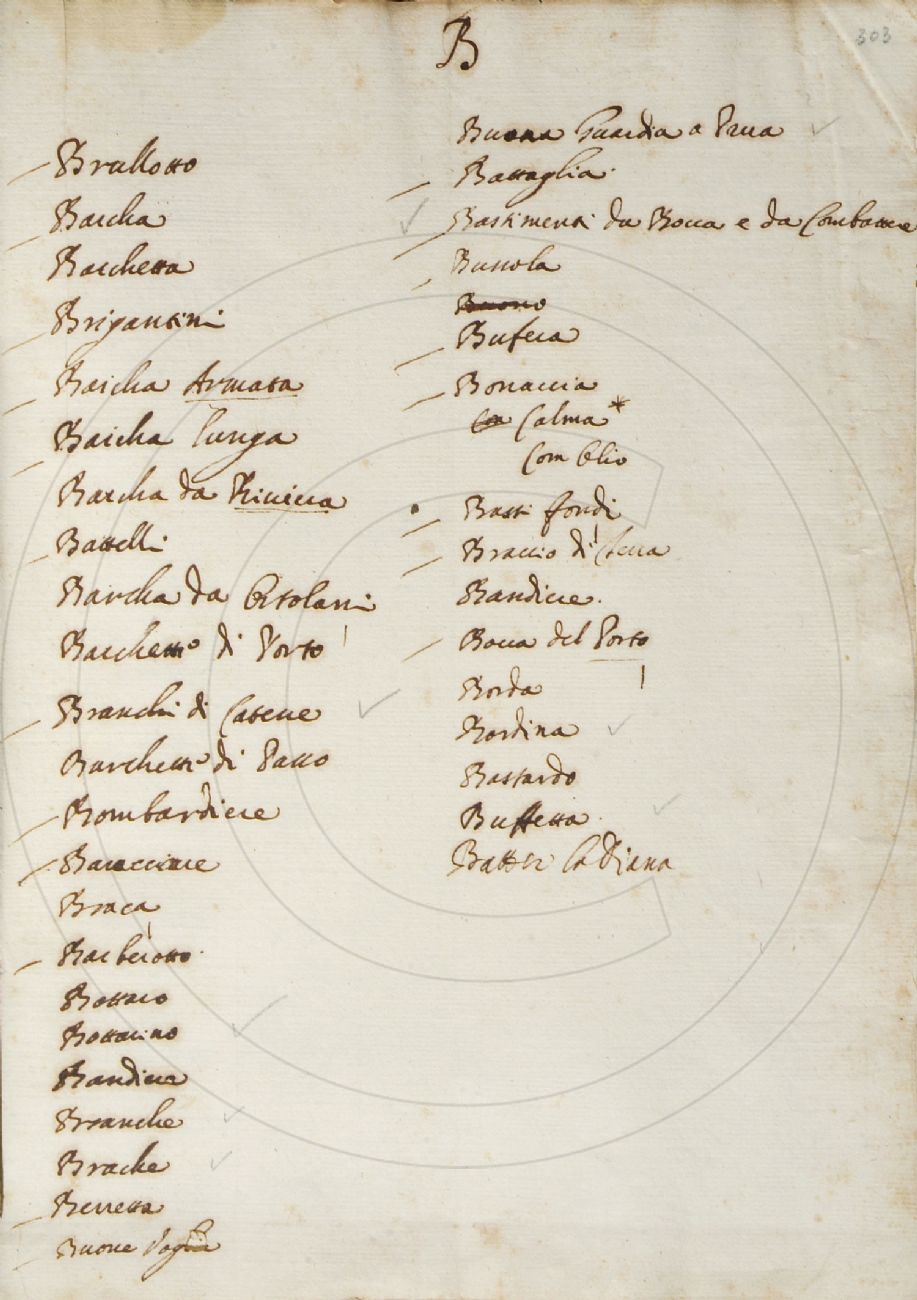 303
B
Brullotto
Barcha
Barchetta
Brigantini
Barcha Armata
Barcha lunga
Barcha da Riviera
Battelli
Barcha da
Barchetto di Porto
Branchi di Catene
Barchetti di Passo
Bombardiere
Braca
Barberotto
Bottaro
Bottarino
Bandiere
Branche
Brache
Berretta
Buone Voglia
Buona Guardia a Prua
Battaglia
Bastimenti da Bocca e da Combattere
Bussola
Buono
Bufera
Bonaccia
Calma *
Com Olio
Bassi fondi
Braccio di
Bandiere.
Bocca del Porto
Borda
Bordina
Bastardo
Buffetta
Batter la Diana